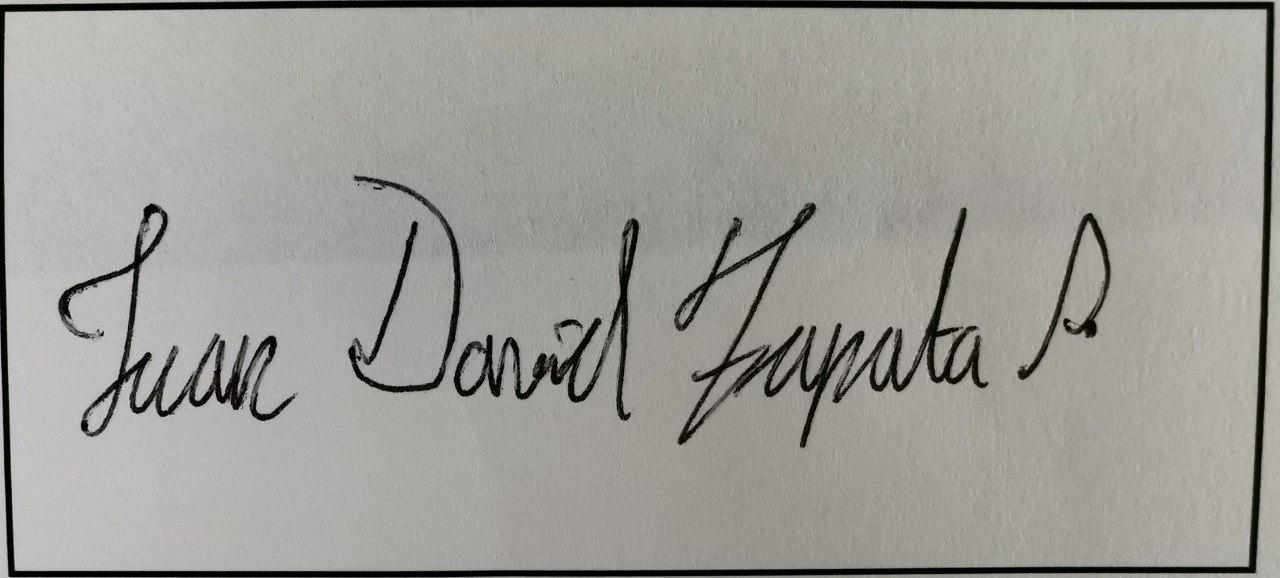 Juan David Zapata